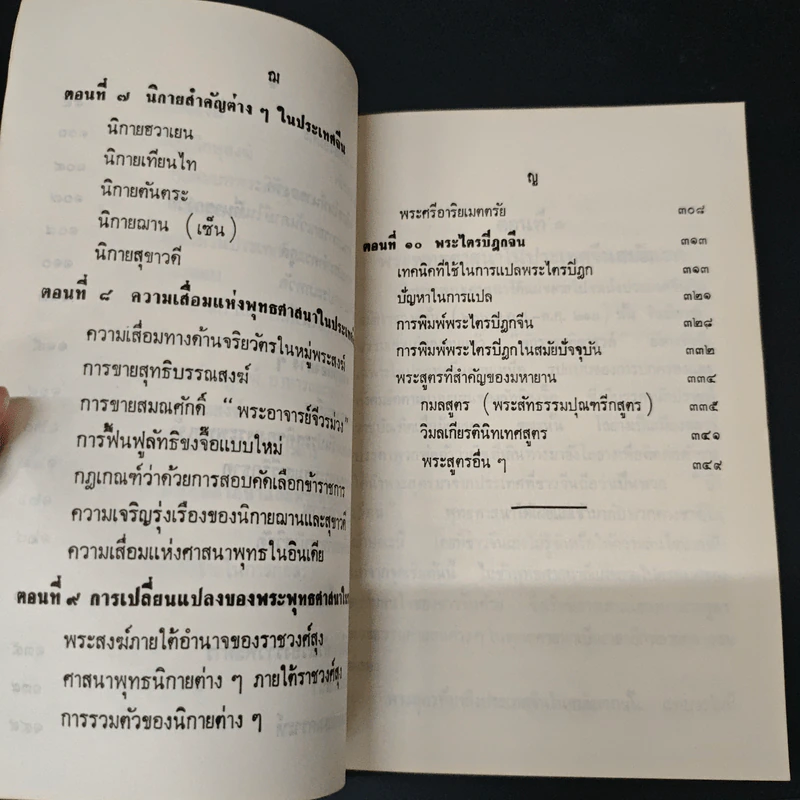 ฌ
ตอนที่ ๗ นิกายสำคัญต่าง ๆ ในประเทศจีน
นิกายฮวาเยน
นิกายเทียนไท
นิกายตันตระ
นิกายฌาน (เซ็น)
นิกายสุขาวดี
ตอนที่ ๘ ความเสื่อมแห่งพุทธศาสนาในประเทศ
ความเสื่อมทางด้านจริยวัตรในหมู่พระสงฆ์
การขายสุทธิบรรณสงฆ์
การขายสมณศักดิ์ “พระอาจารย์จีวรม่วง”
การฟื้นฟูลัทธิขงจื๊อแบบใหม่
กฎเกณฑ์ว่าด้วยการสอบคัดเลือกข้าราชการ
ความเจริญรุ่งเรืองของนิกายฌานและสุขาวดี
ความเสื่อมแห่งศาสนาพุทธในอินเดีย
ตอนที่ ๙ การเปลี่ยนแปลงของพระพุทธศาสนา
พระสงฆ์ภายใต้อำนาจของราชวงศ์สุง
ศาสนาพุทธนิกายต่าง ๆ ภายใต้ราชวงศ์สุง
การรวมตัวของนิกายต่าง ๆ
ญ
พระศรีอาริยเมตตรัย ๓๐๘
ตอนที่ ๑๐ พระไตรปิฎกจีน ๓๑๓
เทคนิคที่ใช้ในการแปลพระไตรปิฎก ๓๑๓
ปัญหาในการแปล ๓๒๑
การพิมพ์พระไตรปิฎกจีน ๓๒๘
การพิมพ์พระไตรปิฎกในสมัยปัจจุบัน ๓๓๒
พระสูตรที่สำคัญของมหายาน ๓๓๔
กมลสูตร (พระสัทธรรมปุณฑรีกสูตร) ๓๓๕
วิมลเกียรตินิทเทศสูตร ๓๔๑
พระสูตรอื่น ๆ ๓๔๙